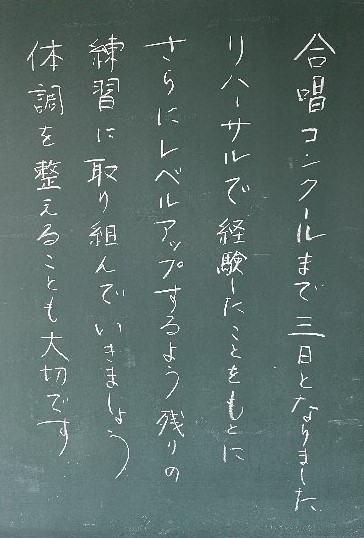 合唱コンクールまで三日となりました
リハーサルで経験したことをもとに
さらにレベルアップするよう残りの
練習に取り組んでいきましょう
体調を整えることも大切です